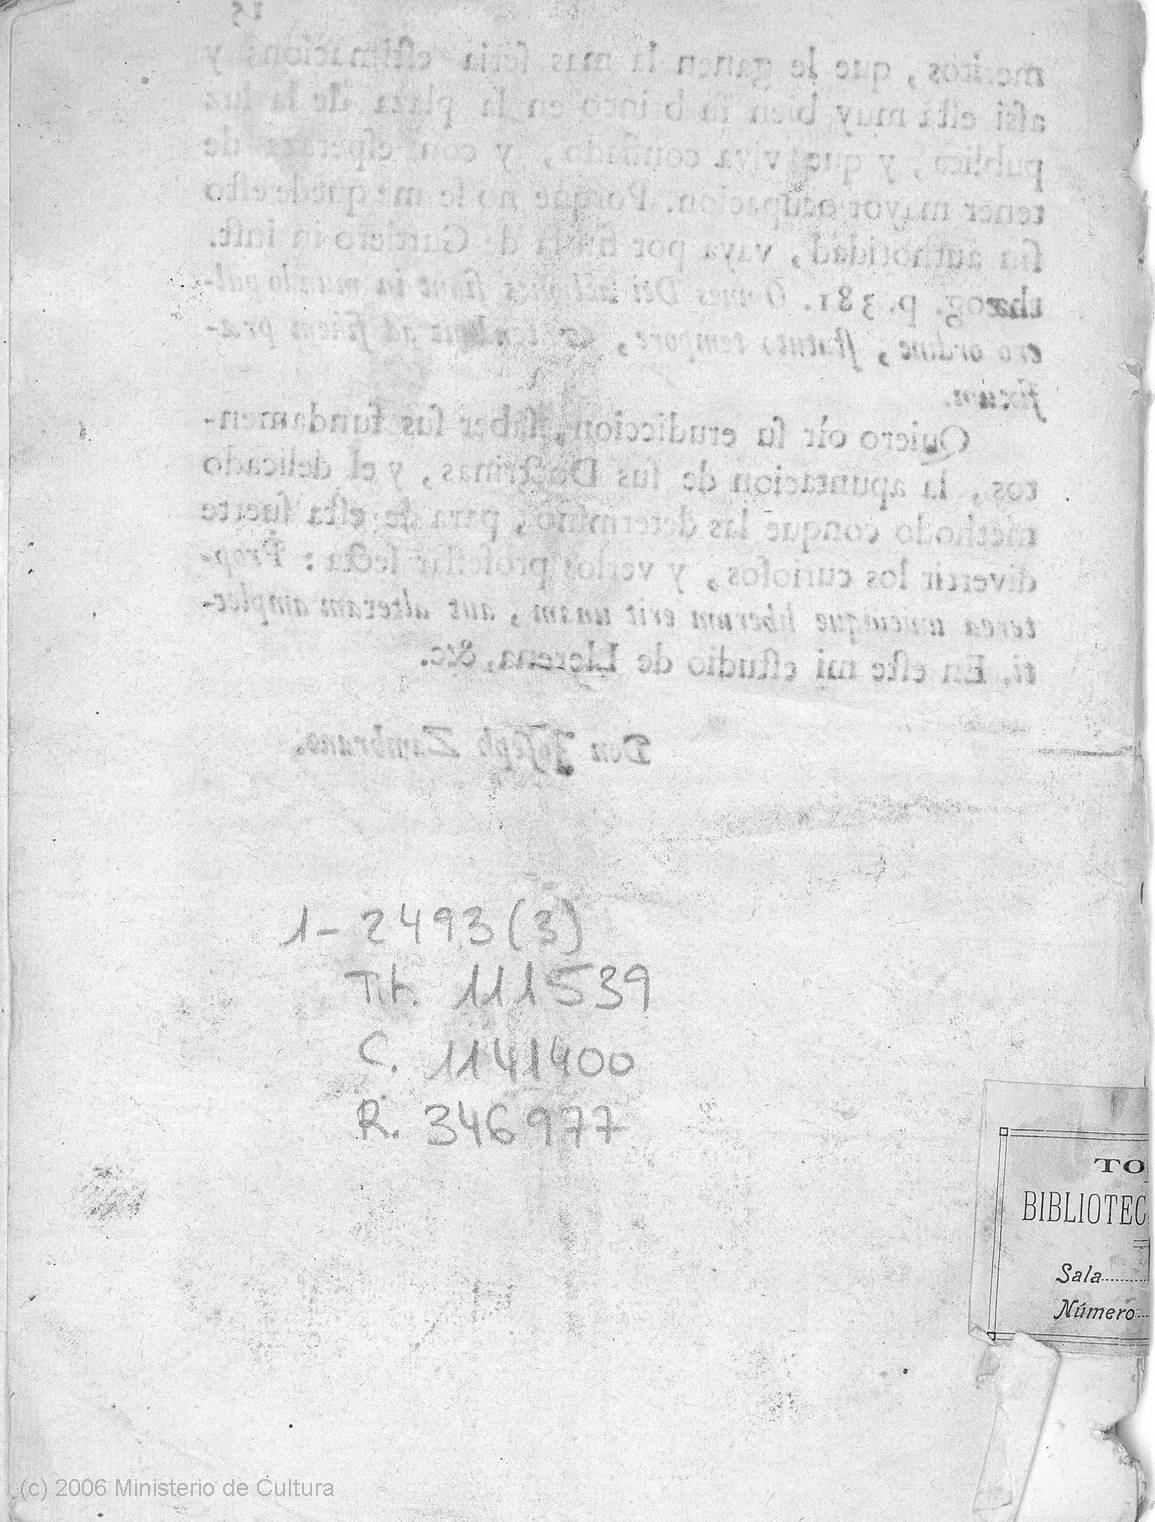 15
meritos, que le ganen la mas seria estimacion; y
assi està muy bien su brinco en la plaza de la luz
publica, y que viva confiado, y con esperaza de
tener mayor ocupacion. Porque no se me quede esto
sin authoridad, vaya por fianza de Gurtlero in inst.
theog. p. 381. Omnes Dei actiones fiunt in mundo pul-
cro ordine, statuto tempore, & tendunt ad finem præ-
fixum.
Quiero oìr su erudiccion, saber sus fundamen-
tos, la apuntacion de sus Doctrinas, y el delicado
methodo conque las determino, para de esta suerte
divertir los curiosos, y verlos professar secta: Prop-
terea unicuique liberum erit unam, aut alteram amplec-
ti. En este mi estudio de Llerena, &c.
Don Joseph Zambrano.
1-2493(3)
Tit. 111539
C. 1141400
R. 346977
TO
BIBLIOTEC
Sala
Número
(c) 2006 Ministerio de Cultura